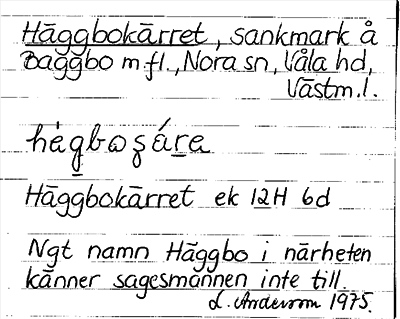 Häggbokärret, sankmark å
Baggbo m fl., Nora sn, Våla hd,
Västm. l.
Häggbokärret ek 12H 6d
Ngt namn Häggbo i närheten
känner sagesmännen inte till.
L. Anderson 1975.